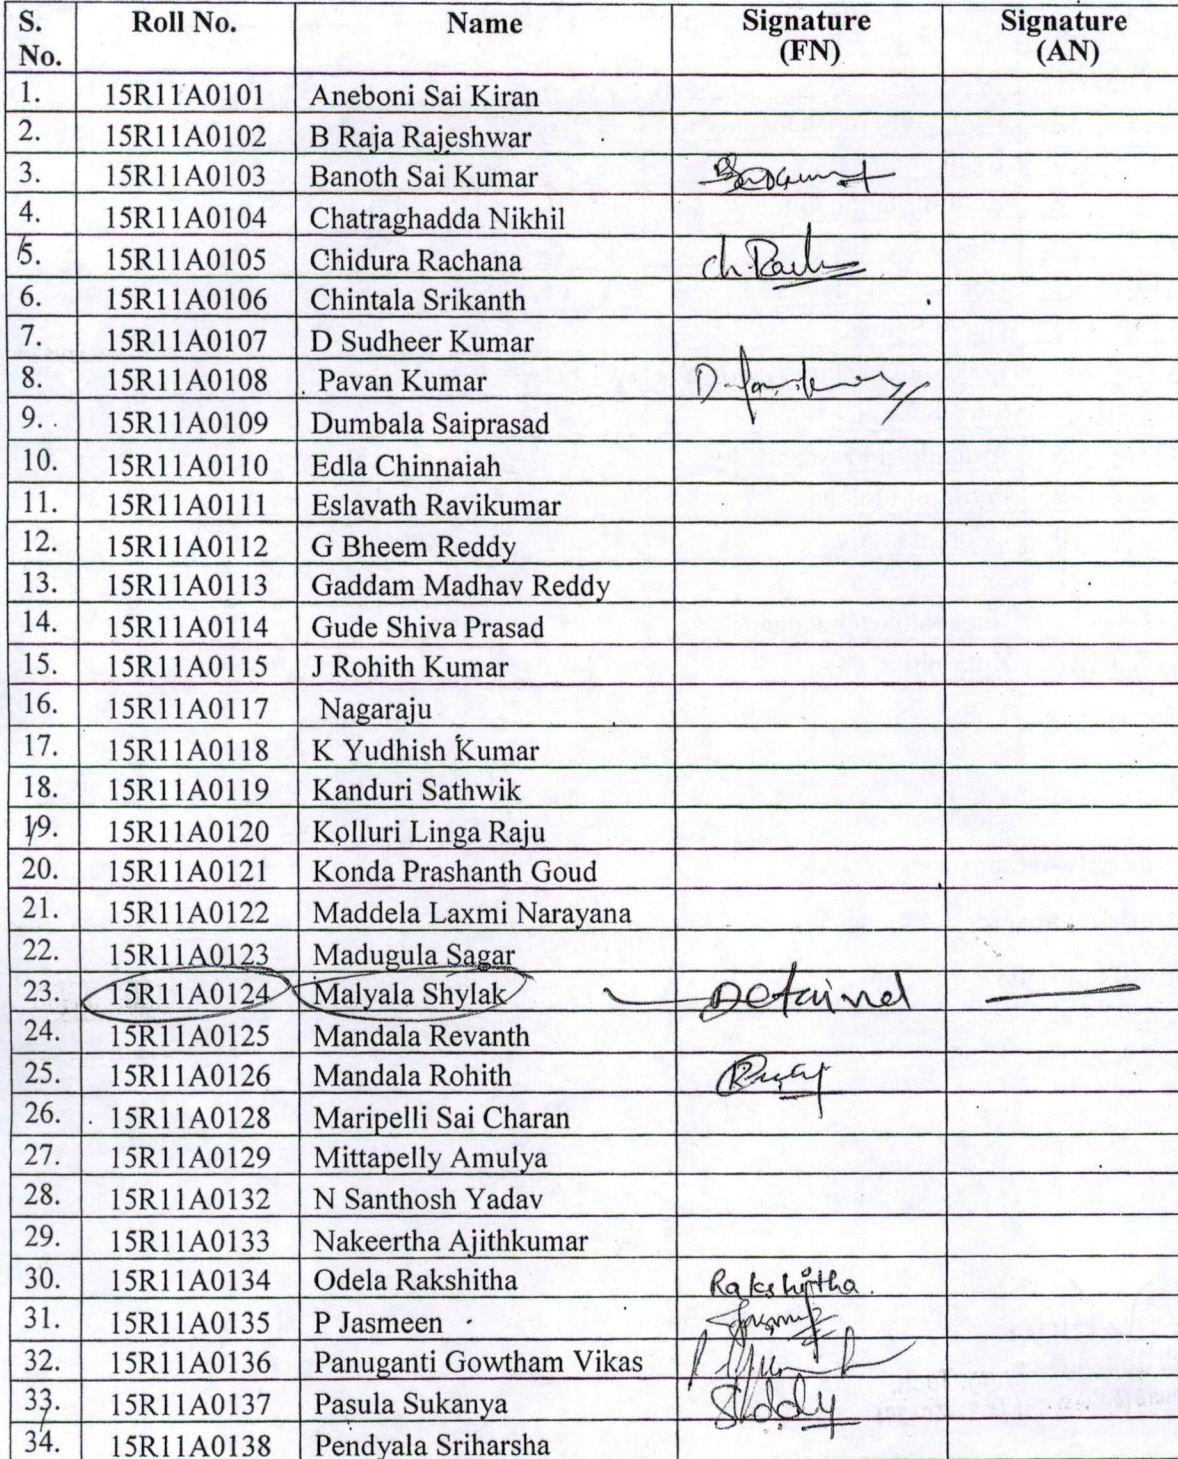 S. No. Roll No. Name Signature (FN) Signature (AN)
1. 15R11A0101 Aneboni Sai Kiran
2. 15R11A0102 B Raja Rajeshwar
3. 15R11A0103 Banoth Sai Kumar
4. 15R11A0104 Chatraghadda Nikhil
5. 15R11A0105 Chidura Rachana
6. 15R11A0106 Chintala Srikanth
7. 15R11A0107 D Sudheer Kumar
8. 15R11A0108 Pavan Kumar
9. 15R11A0109 Dumbala Saiprasad
10. 15R11A0110 Edla Chinnaiah
11. 15R11A0111 Eslavath Ravikumar
12. 15R11A0112 G Bheem Reddy
13. 15R11A0113 Gaddam Madhav Reddy
14. 15R11A0114 Gude Shiva Prasad
15. 15R11A0115 J Rohith Kumar
16. 15R11A0117 Nagaraju
17. 15R11A0118 K Yudhish Kumar
18. 15R11A0119 Kanduri Sathwik
19. 15R11A0120 Kolluri Linga Raju
20. 15R11A0121 Konda Prashanth Goud
21. 15R11A0122 Maddela Laxmi Narayana
22. 15R11A0123 Madugula Sagar
23. 15R11A0124 Malyala Shylak Detained
24. 15R11A0125 Mandala Revanth
25. 15R11A0126 Mandala Rohith
26. 15R11A0128 Maripelli Sai Charan
27. 15R11A0129 Mittapelly Amulya
28. 15R11A0132 N Santhosh Yadav
29. 15R11A0133 Nakeertha Ajithkumar
30. 15R11A0134 Odela Rakshitha Rakshitha.
31. 15R11A0135 P Jasmeen
32. 15R11A0136 Panuganti Gowtham Vikas
33. 15R11A0137 Pasula Sukanya
34. 15R11A0138 Pendyala Sriharsha